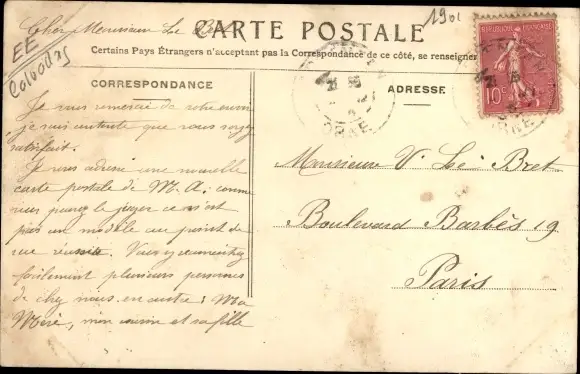 Cher Monsieur Le Bret
CARTE POSTALE
1901
EE
Certains Pays Étrangers n'acceptant pas la Correspondance de ce côté, se renseigner
REPUBLIQUE FRANÇAISE
10c
ORNE
CORRESPONDANCE
ADRESSE
Je vous remercie de votre envoi
je suis contente que vous soyez
satisfait.
Je vous adresse une nouvelle
carte postale de M. A. comme
vous pouvez le juger ce n'est
pas un modèle au point de
vue réussite. Vous y reconnaîtrez
facilement plusieurs personnes
de chez nous en outre: Ma
Mère, mon cousin et sa fille
Monsieur V. Le Bret
Boulevard Barbès 19
Paris